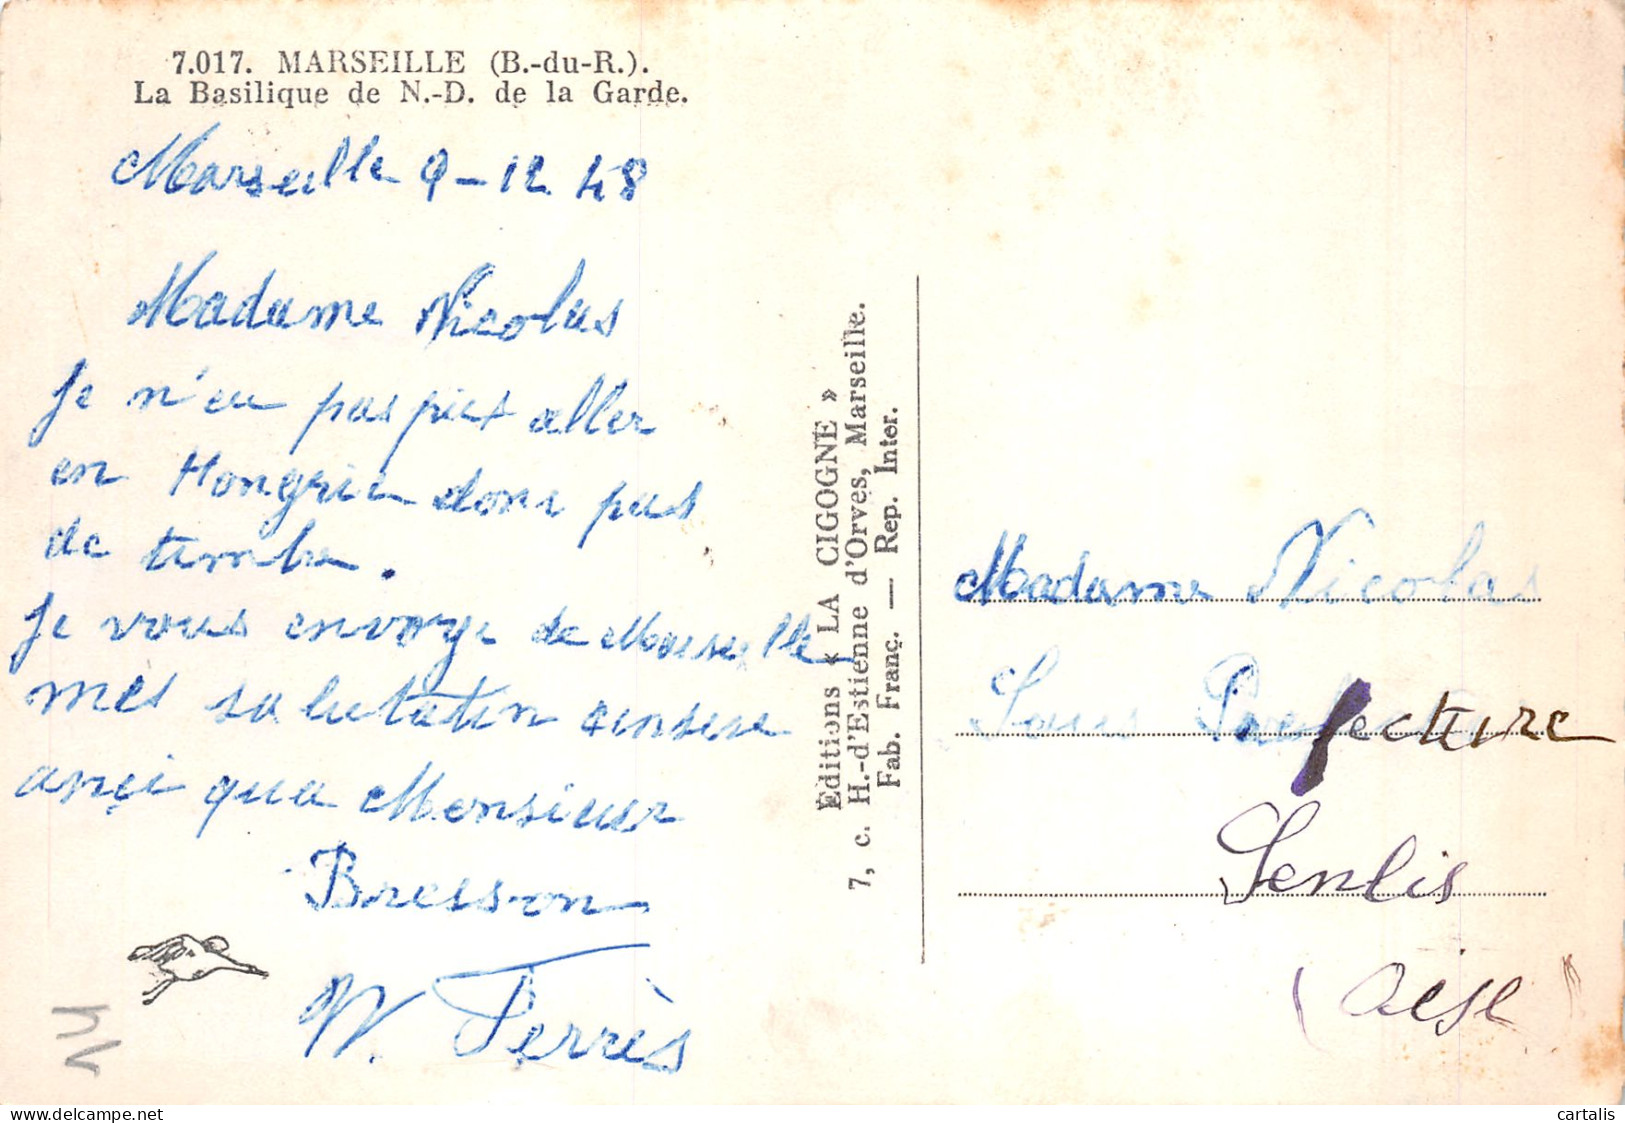 7.017. MARSEILLE (B.-du-R.).
La Basilique de N.-D. de la Garde.
Marseille 9-12 48
Madame Nicolas
Je n'eu pas put aller
en Hongrie donc pas
de timbre.
Je vous envoye de Marseille
mes salutation
ançi que Monsieur
Bresson
Ferrès
Editions « LA CIGOGNE »
7, c. H.-d'Estienne d'Orves, Marseille.
Fab. Franç. — Rep. Inter.
Madame Nicolas
Sous Prefecture
Senlis
(Oise)
cartalis